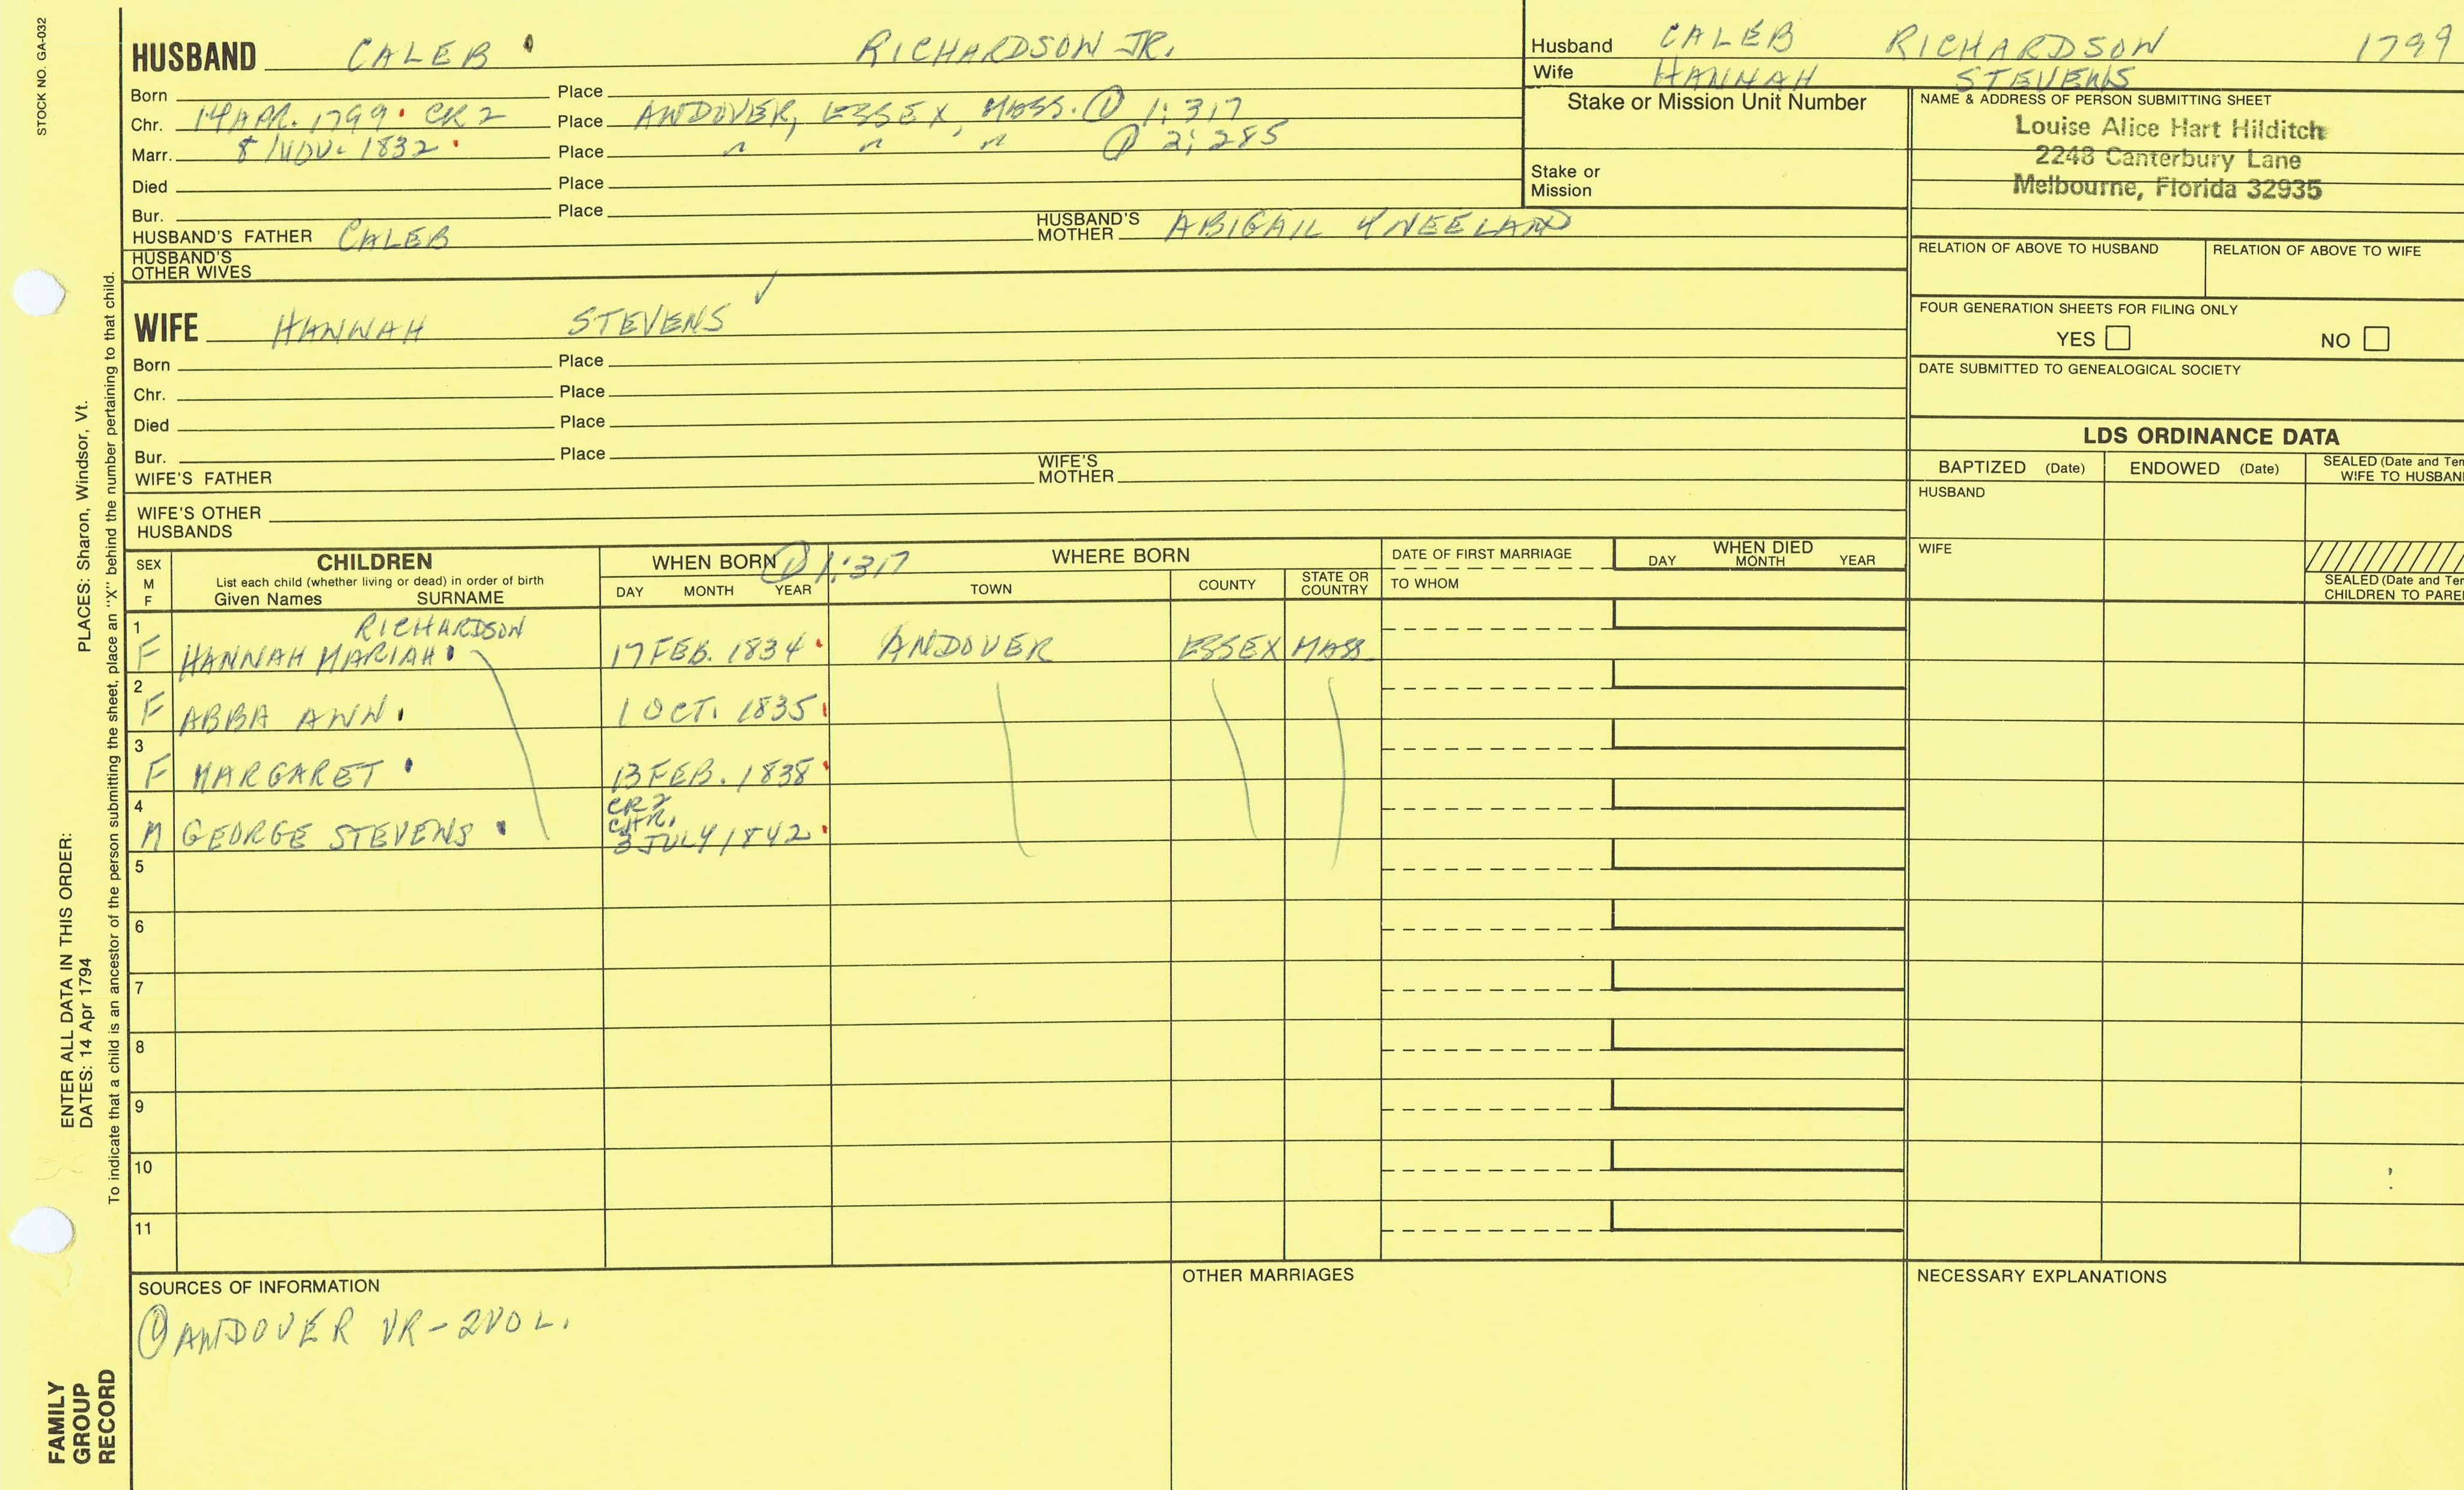 STOCK NO. GA-032
HUSBAND CALEB RICHARDSON JR.
Born Place
Chr. 14 APR. 1799 CR2 Place ANDOVER, ESSEX, MASS. ① 1:317
Marr. 8 NOV. 1832 Place " " " ① 2:285
Died Place
Bur. Place
HUSBAND'S FATHER CALEB HUSBAND'S MOTHER ABIGAIL KNEELAND
HUSBAND'S OTHER WIVES
Husband CALEB RICHARDSON 1799
Wife HANNAH STEVENS
Stake or Mission Unit Number
Stake or Mission
NAME & ADDRESS OF PERSON SUBMITTING SHEET
Louise Alice Hart Hilditch
2248 Canterbury Lane
Melbourne, Florida 32935
RELATION OF ABOVE TO HUSBAND RELATION OF ABOVE TO WIFE
FOUR GENERATION SHEETS FOR FILING ONLY
YES NO
DATE SUBMITTED TO GENEALOGICAL SOCIETY
WIFE HANNAH STEVENS ✓
Born Place
Chr. Place
Died Place
Bur. Place
WIFE'S FATHER WIFE'S MOTHER
WIFE'S OTHER HUSBANDS
LDS ORDINANCE DATA
BAPTIZED (Date) ENDOWED (Date) SEALED (Date and Tem
WIFE TO HUSBAN
HUSBAND
WIFE
SEALED (Date and Tem
CHILDREN TO PARE
SEX M F
CHILDREN
List each child (whether living or dead) in order of birth
Given Names SURNAME
WHEN BORN ① 1:317
DAY MONTH YEAR
WHERE BORN
TOWN COUNTY STATE OR COUNTRY
DATE OF FIRST MARRIAGE
TO WHOM
WHEN DIED
DAY MONTH YEAR
1 RICHARDSON
F HANNAH MARIAH 17 FEB. 1834 ANDOVER ESSEX MASS.
2
F ABBA ANN 1 OCT. 1835
3
F MARGARET 13 FEB. 1838
4 CR2
CHR.
M GEORGE STEVENS 3 JULY 1842
5
6
7
8
9
10
11
SOURCES OF INFORMATION
① ANDOVER VR - 2 VOL.
OTHER MARRIAGES
NECESSARY EXPLANATIONS
ENTER ALL DATA IN THIS ORDER:
DATES: 14 Apr 1794 PLACES: Sharon, Windsor, Vt.
To indicate that a child is an ancestor of the person submitting the sheet, place an "X" behind the number pertaining to that child.
FAMILY
GROUP
RECORD